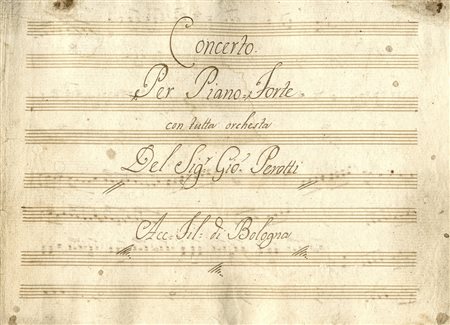 Concerto.
Per Piano=Forte
con tutta orchesta
Del Sig.r Gio: Perotti
Acc: Fil: di Bologna